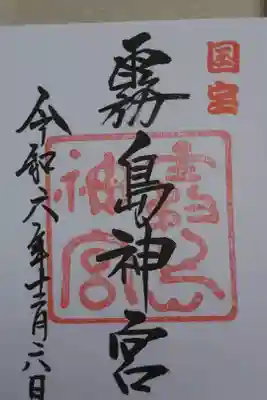 国宝
霧島神宮
霧島神宮
令和六年十二月六日